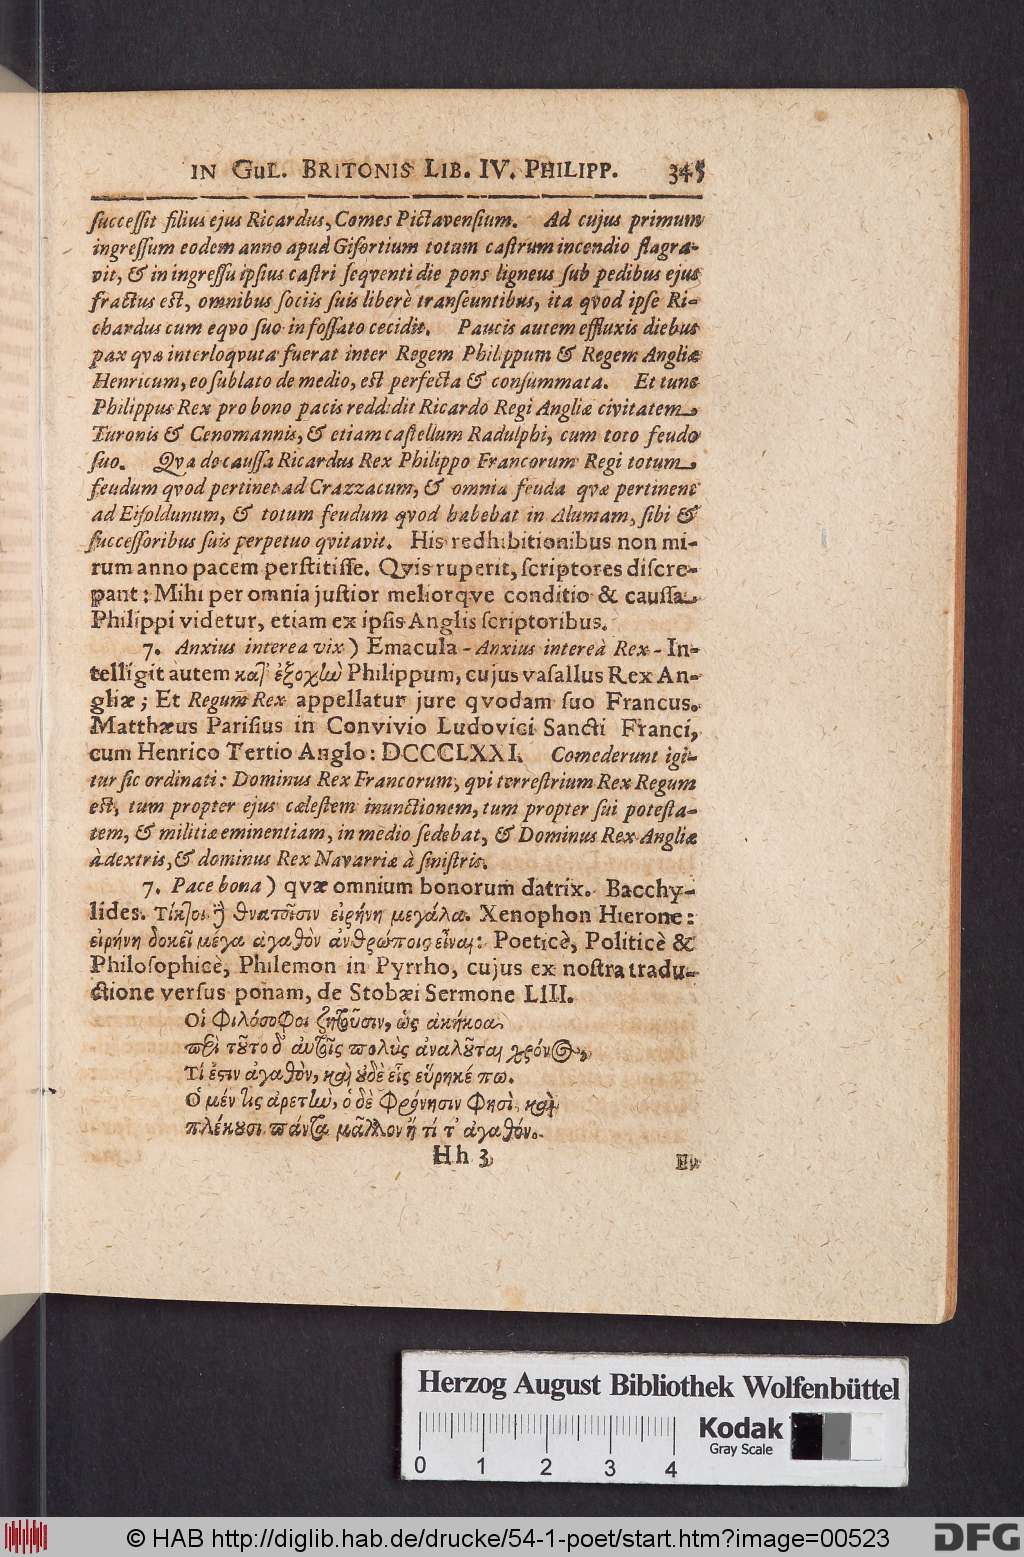 IN GUL. BRITONIS LIB. IV. PHILIPP. 345
ſucceſſit filius ejus Ricardus, Comes Pictavenſium. Ad cujus primum
ingreſſum eodem anno apud Giſortium totum caſtrum incendio flagra-
vit, & in ingreſſu ipſius caſtri ſeqventi die pons ligneus ſub pedibus ejus
fractus eſt, omnibus ſociis ſuis liberè tranſeuntibus, ita qvod ipſe Ri-
chardus cum eqvo ſuo in foſſato cecidit. Paucis autem effluxis diebus
pax qvæ interloqvuta fuerat inter Regem Philippum & Regem Angliæ
Henricum, eo ſublato de medio, eſt perfecta & conſummata. Et tunc
Philippus Rex pro bono pacis reddidit Ricardo Regi Angliæ civitatem
Turonis & Cenomannis, & etiam caſtellum Radulphi, cum toto feudo
ſuo. Qva de cauſſa Ricardus Rex Philippo Francorum Regi totum
feudum qvod pertinet ad Crazzacum, & omnia feuda qvæ pertinent
ad Eiſoldunum, & totum feudum qvod habebat in Alumam, ſibi &
ſucceſſoribus ſuis perpetuo qvitavit. His redhibitionibus non mi-
rum anno pacem perſtitiſſe. Qvis ruperit, ſcriptores diſcre-
pant: Mihi per omnia juſtior meliorqve conditio & cauſſa
Philippi videtur, etiam ex ipſis Anglis ſcriptoribus.
7. Anxius interea vix) Emacula - Anxius intereà Rex - In-
telligit autem κατ' ἐξοχὴν Philippum, cujus vaſallus Rex An-
gliæ; Et Regum Rex appellatur jure qvodam ſuo Francus.
Matthæus Pariſius in Convivio Ludovici Sancti Franci,
cum Henrico Tertio Anglo: DCCCLXXI. Comederunt igi-
tur ſic ordinati: Dominus Rex Francorum, qvi terreſtrium Rex Regum
eſt, tum propter ejus cæleſtem inunctionem, tum propter ſui poteſta-
tem, & militiæ eminentiam, in medio ſedebat, & Dominus Rex Angliæ
à dextris, & dominus Rex Navarriæ à ſiniſtris.
7. Pace bona) qvæ omnium bonorum datrix. Bacchy-
lides. Τίκτει δὲ θνατοῖσιν εἰρήνη μεγάλα. Xenophon Hierone:
εἰρήνη δοκεῖ μέγα ἀγαθὸν ἀνθρώποις εἶναι: Poeticè, Politicè &
Philoſophicè, Philemon in Pyrrho, cujus ex noſtra tradu-
ctione verſus ponam, de Stobæi Sermone LIII.
Οἱ φιλόσοφοι ζητοῦσιν, ὡς ἀκήκοα,
περὶ τοῦτο δ' αὐτοῖς πολὺς ἀναλοῦται χρόνος,
Τί ἐστιν ἀγαθὸν, καὶ οὐδὲ εἷς εὕρηκέ πω.
Ὁ μέν τις ἀρετὴν, ὁ δὲ φρόνησιν φησὶ, καὶ
πλέκουσι πάντα μᾶλλον ἤ τί τ' ἀγαθόν.
Hh 3
Herzog August Bibliothek Wolfenbüttel
0 1 2 3 4
Kodak
Gray Scale
© HAB http://diglib.hab.de/drucke/54-1-poet/start.htm?image=00523
DFG